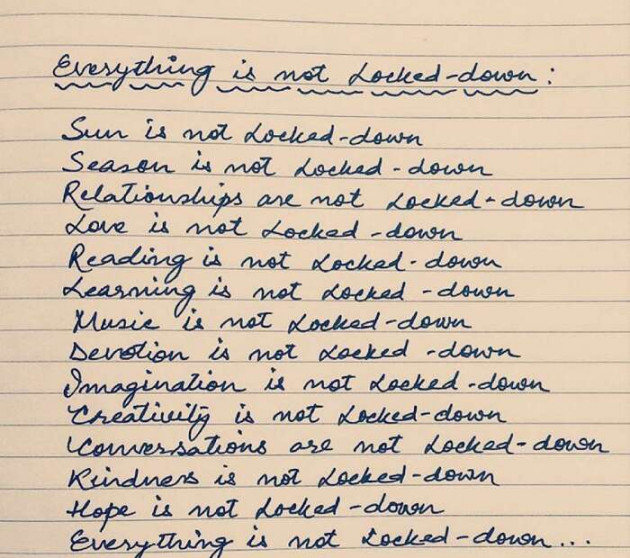 Everything is not Locked-down:
Sun is not Locked-down
Season is not Locked-down
Relationships are not Locked-down
Love is not Locked-down
Reading is not Locked-down
Learning is not Locked-down
Music is not Locked-down
Devotion is not Locked-down
Imagination is not Locked-down
Creativity is not Locked-down
Conversations are not Locked-down
Kindness is not Locked-down
Hope is not Locked-down
Everything is not Locked-down...